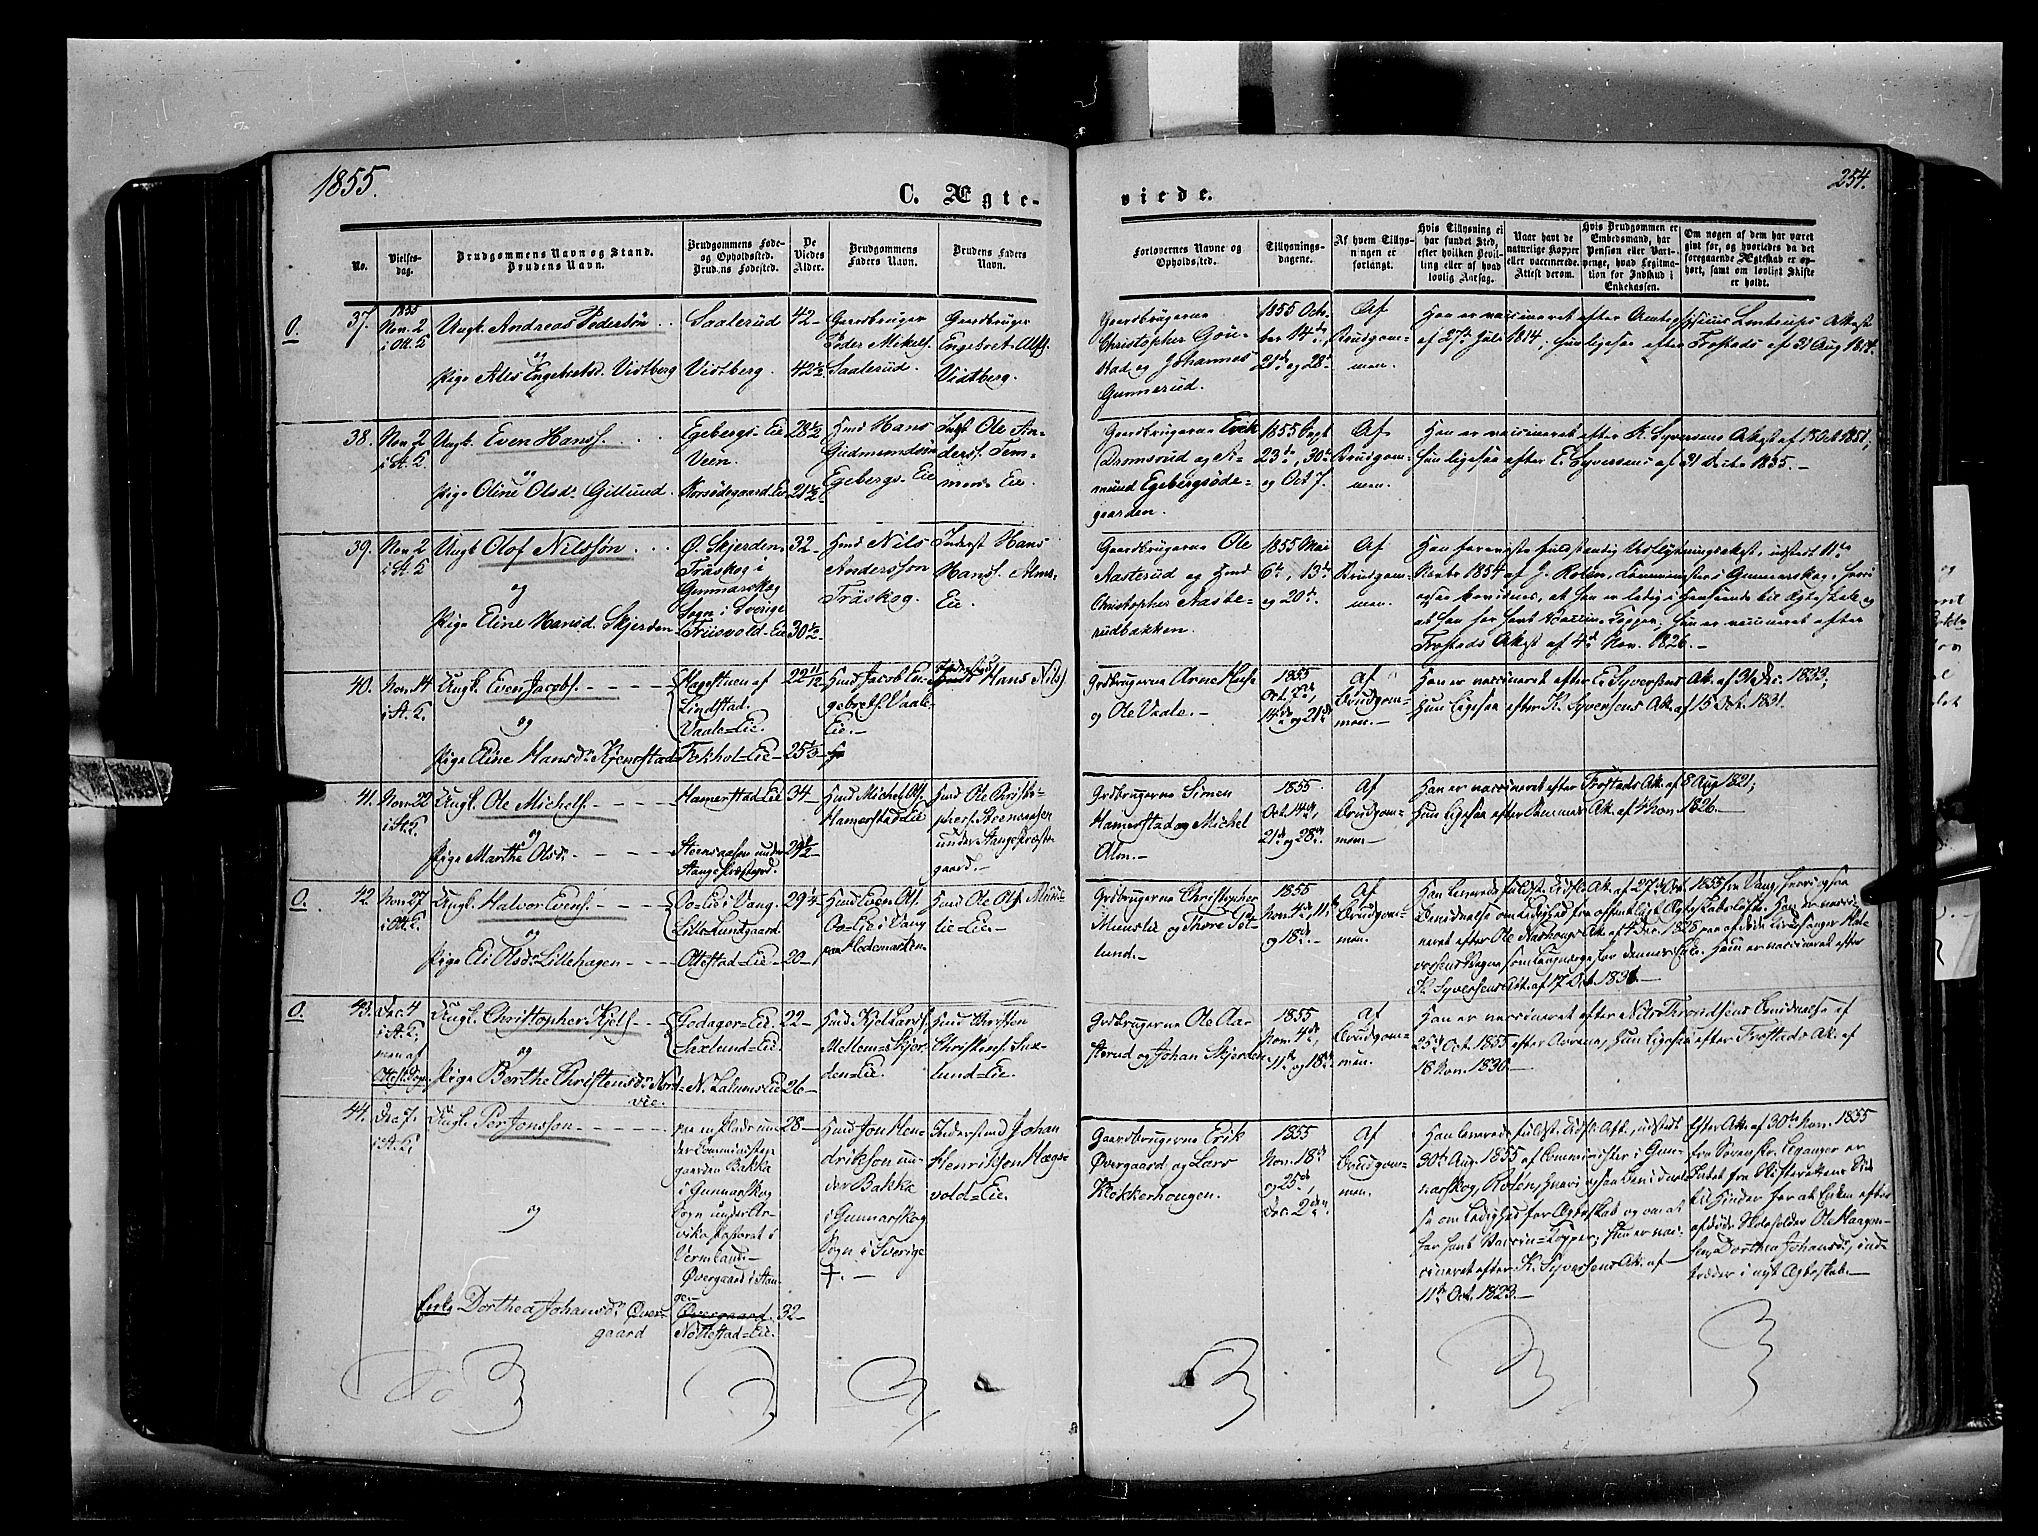 1855.
C. Ægte-
viede.
254.
No.
Vielses-
dag.
Brudgommens Navn og Stand.
Brudens Navn.
Brudgommens Føde-
og Opholdssted.
Brudens Fødested.
De
Viedes
Alder.
Brudgommens
Faders Navn.
Brudens Faders
Navn.
Forlovernes Navne og
Opholdssted.
Tillysnings-
dagene.
Af hvem Tillys-
ningen er
forlangt.
Hvis Tillysning ei
har fundet Sted,
efter hvilken Bevil-
ling eller af hvad
lovlig Aarsag.
Naar havt de
naturlige Kopper
eller vaccinerede.
Attest derom.
Hvis Brudgommen er
Embedsmand, har
Pension eller Vart-
penge, hvad Legitima-
tion for Indskud i
Enkekassen.
Om nogen af dem har været
gift før, og hvorledes da det
foregaaende Ægteskab er op-
hørt, samt om lovligt Skifte
er holdt.
O.
37.
1855
Nov. 2
i Ott. K
Ungk. Andreas Pedersøn
og
Pige Alis Engebretsd. Vidtberg
Saalerud
Vidtberg.
42
42 1/2
Gaardbruger
Peder Mikels.
Saalerud.
Gaardbruger
Engebret Alfs.
Vidtberg.
Gaardbrugerne
Christopher
stad og Johannes
Gunnerud.
1855 Octo-
ber 14de,
21de og 28de
Af
Brudgom-
men.
Han er vaccineret efter
af 27de Juli 1814; hun ligesaa efter Frostads af 31 Aug 1814.
38.
Nov. 2
i A. K.
Ungk. Even Hanss.
og
Pige Oline Olsdr. Gillund
Egebergs-Eie
Veen.
Korsødegaard-Eie
28 1/2
21 1/2
Huusmd Hans
Gudmundsøn
Egebergs-Eie
Inds. Ole An-
derss. Tom-
mers-Eie.
Gaardbrugerne Erik
Dromsrud og A-
mund Egebergsøde-
gaarden.
1855 Sept
23de, 30te
og Oct 7.
Af
Brudgom-
men.
Han er vaccineret efter K. Syversens Attest af 15 Oct 1831;
hun ligesaa efter E. Syversens af 31 Decbr 1835.
39.
Nov. 2
i A. K
Ungk. Olof Nilsson
og
Pige Eline Hansd. Skjerden
Ø. Skjerden
Träskog i
Gunnarskog
Sogn i Sverige
Friisvold-Eie
32
30 1/2
Huusmd Nils
Andersson
Träskog.
Inderst Hans
Hanss. Alms-
Eie.
Gaardbrugerne Ole
Aasterud og Huusmd
Christopher Aaste-
rudbakken.
1855 Mai
6te, 13de
og 20de.
Af
Brudgom-
men.
Han foreviste fuldstændig Udflytningsattest, udstedt 11te
Novbr 1854 af J. Roten, Comminister i Gunnarskog, hvori
ogsaa bevidnes, at han er ledig i Henseende til Ægteskab og
at han har havt Vaccine-Kopper; hun er vaccineret efter
Frostads Attest af 4de Nov. 1826.
40.
Nov. 14
i A. K.
Ungk. Even Jacobs.
og
Pige Eline Hansdr. Kjemstad
Hagestuen af
Lindstad.
Vaale-Eie.
Tokhol-Eie
22 11/12
25 1/3
Huusmd Jacob En-
gebrets. Vaale-
Eie.
Hans Nils.
Grdbrugerne Arne Huse
og Ole Vaale.
1855
Oct. 7de,
14de og 21de
Af
Brudgom-
men.
Han er vaccineret efter E. Syversens Att. af 31 Dec. 1833;
hun ligesaa efter K. Syversens Att. af 15 Oct. 1831.
41.
Nov. 22
i A. K.
Ungk. Ole Michels.
og
Pige Marthe Olsdr.
Hamerstad-Eie
Steensaasen under
Stange Præstegrd.
34
29 1/2
Huusmd Michel Ols.
Hamerstad-Eie
Huusmd Ole Christo-
phers. Steensaasen
under Stange Præste-
gaard.
Grdbrugerne Simen
Hamerstad og Michel
Alm.
1855.
Oct. 14de,
21de og 28de.
Af
Brudgom-
men.
Han er vaccineret efter Frostads Att. af 8 Aug 1821;
hun ligesaa efter Sammes Att. af 4 Nov. 1826.
O.
42
Nov. 27
i Ott. K.
Ungk. Halvor Evens.
og
Pige Eli Olsdr. Lillehagen
Bo-Eie i Vang.
Lille Lundgaard
Ottestad-Eie
29 1/4
20
Huusmd Even Ols.
Bo-Eie i Vang
paa Hedemarken
Huusmd Ole Ols. Muns-
lie-Eie.
Grdbrugerne Christopher
Munslie og Thore Sø-
lund.
1855
Nov. 4de, 11te
og 18de.
Af
Brudgom-
men.
Han leverede fuldst. Udfl. Att. af 27de Oct. 1855 fra Vang, hvori ogsaa
Bevidnelse om Ledighed fra offentligt Ægteskabsløfte. Han er vacci-
neret efter Ole Att. af 4 Dec. 1826
Hun er vaccineret efter
K. Syversens Att. af 17 Oct. 1836.
O.
43.
Dec. 4
i A. K.
men af
Ottest. Sogn.
Ungk. Christopher Kjels.
og
Pige Berthe Christensdr. Nord-
vie.
Godager-Eie.
Saxlund-Eie.
N. Lalums Eie
22
26
Huusmd Kjel Lards.
Mellem-Skjer-
den-Eie.
Huusmd Christen
Christens. Sax-
lund-Eie.
Grdbrugerne Ole Aa-
sterud og Johan Skjerden
1855
Nov. 4de,
11te og 18de
Af
Brudgom-
men.
Han er vaccineret efter Nils Throndsens Bevidnelse af
25de Oct. 1855 efter hun ligesaa efter Frostads Att. af
18 Nov. 1830.
44.
Dec. 7.
i A. K.
Ungk. Per Jonsson
og
Enke Dorthea Johansdr. Øver-
gaard
paa en Plads un-
der Comminister-
gaarden Bakka
i Gunnarskog
Sogn under Ar-
vika Pastorat i
Vermland.
Øvergaard i Stan-
ge.
Øvergaard.
Nøttestad-Eie.
28
32
Huusmd Jon Hen-
drikson un-
der Bakka
i Gunnarskog
Sogn i Sverige
+.
Inderstmd Johan
Henrikson Hægs-
vold-Eie.
Gaardbrugerne Erik
Øvergaard og Lars
Klokkerhougen.
1855
Nov. 18de
og 25de,
Dec. 2den.
Af
Brudgom-
men.
Han leverede fuldst. Udfl. Att., udstedt
30te Aug. 1855 af Comminister i Gun-
narskog, Roten, hvori ogsaa Bevidnel-
se om Ledighed for Ægteskab og om at
har havt Vaccin-Kopper; Hun er vac-
cineret efter K. Syversens Att. af
11te Oct. 1823.
Efter Att. af 30te Nov. 1855
fra Sorenskr. Leganger er
Intet fra Skifterettens Side
til Hinder for at Enken efter
afdøde Ole Haagen-
sen, Dorthea Johansdr., ind-
træder i nyt Ægteskab.